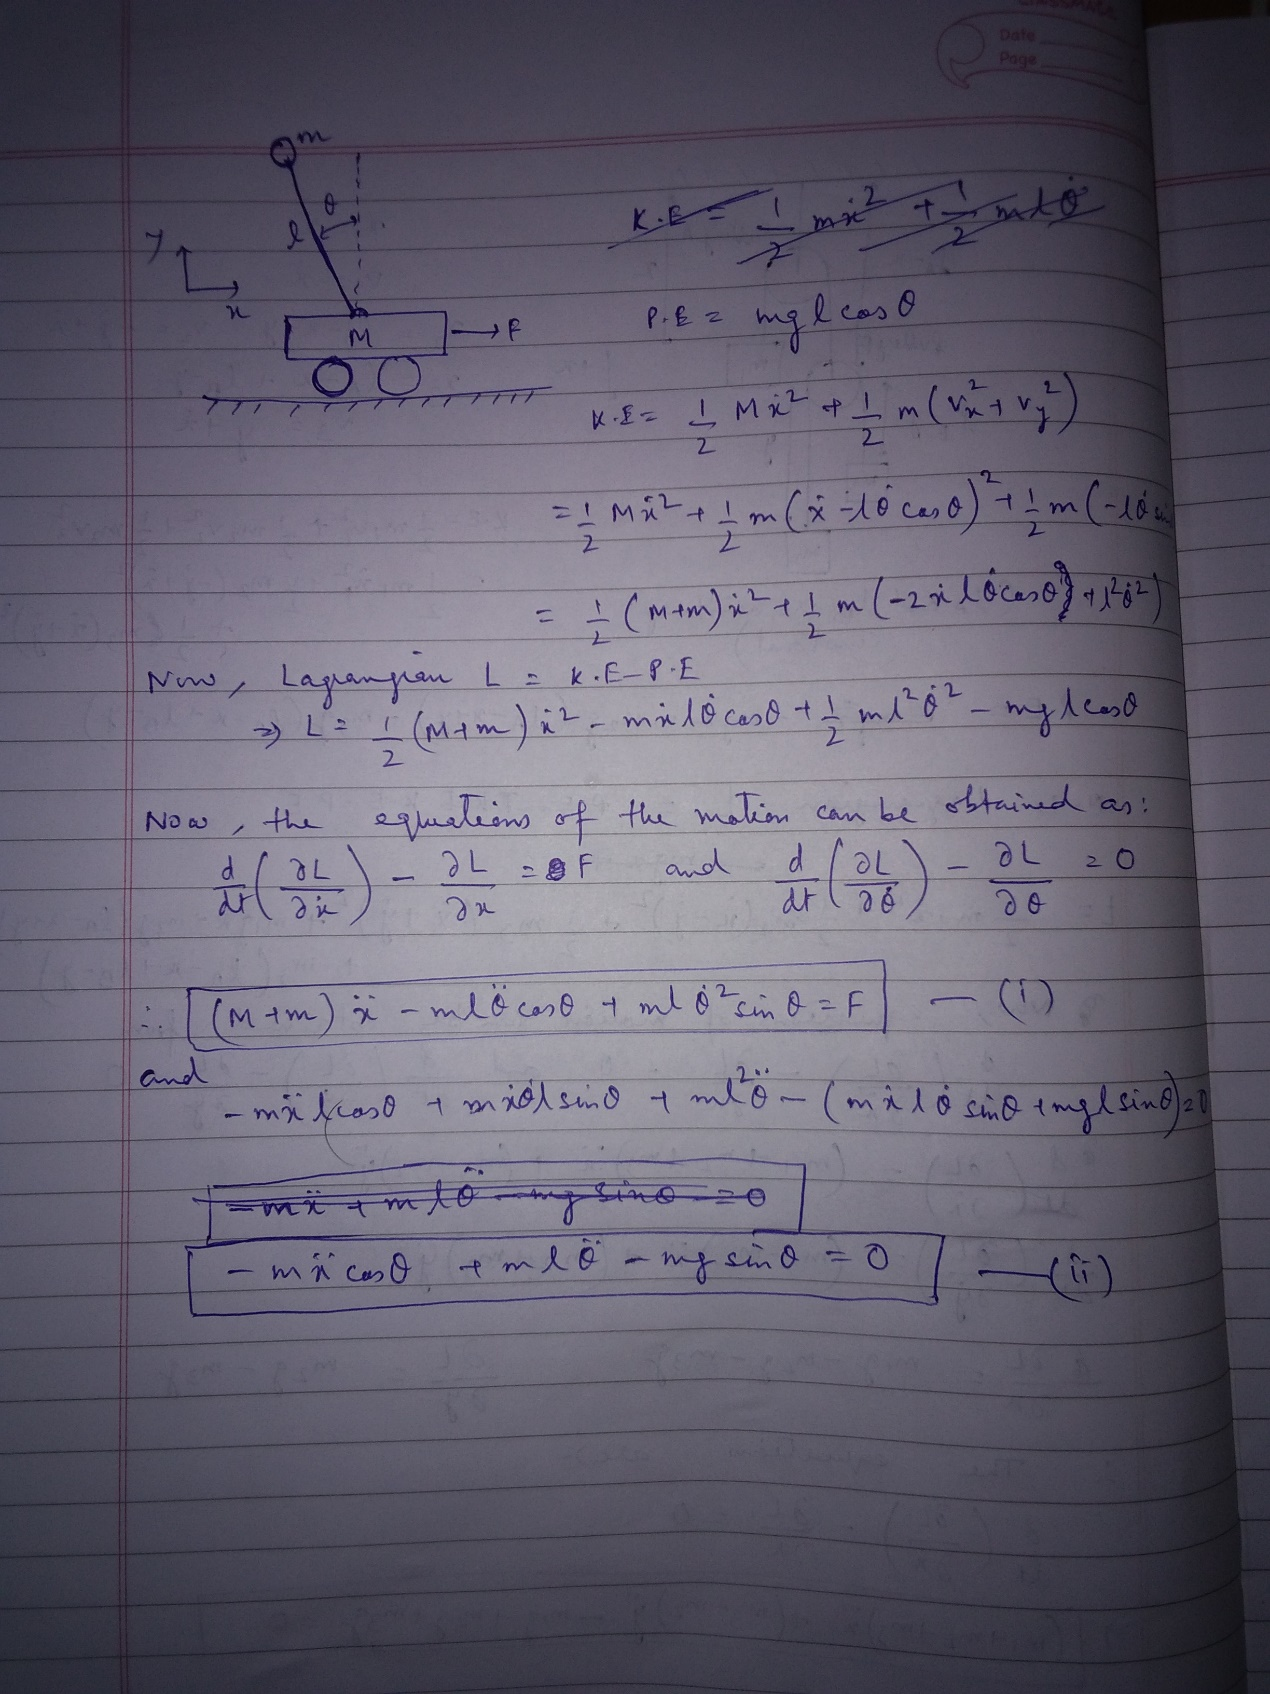 Date
Page
m
θ
l
y
x
M
F
K.E = 1/2 mẋ² + 1/2 mlθ̇
P.E = mgl cosθ
K.E = 1/2 Mẋ² + 1/2 m(vx² + vy²)
= 1/2 Mẋ² + 1/2 m(ẋ - lθ̇ cosθ)² + 1/2 m(-lθ̇ sin
= 1/2 (M+m)ẋ² + 1/2 m(-2ẋlθ̇cosθ + l²θ̇²)
Now, Lagrangian L = K.E - P.E
⇒ L = 1/2 (M+m)ẋ² - mẋlθ̇cosθ + 1/2 ml²θ̇² - mglcosθ
Now, the equations of the motion can be obtained as:
d/dt(∂L/∂ẋ) - ∂L/∂x = F and d/dt(∂L/∂θ̇) - ∂L/∂θ = 0
∴ (M+m)ẍ - mlθ̈cosθ + mlθ̇²sinθ = F — (i)
and
- mẍlcosθ + mẋθ̇lsinθ + ml²θ̈ - (mẋlθ̇sinθ + mglsinθ) = 0
- mẍ + mlθ̈ - mg sinθ = 0
- mẍ cosθ + mlθ̈ - mg sinθ = 0 — (ii)